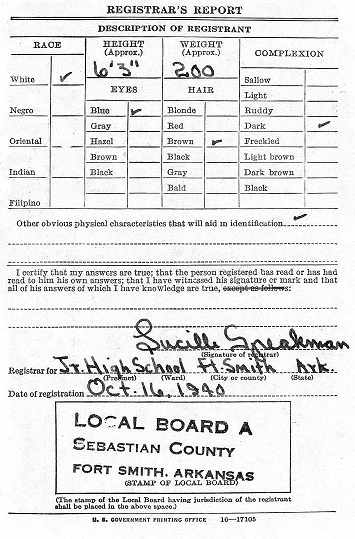 REGISTRAR'S REPORT
DESCRIPTION OF REGISTRANT
RACE HEIGHT (Approx.) WEIGHT (Approx.) COMPLEXION
6'3" 200
White ✓ Sallow
EYES HAIR Light
Negro Blue ✓ Blonde Ruddy
Gray Red Dark ✓
Oriental Hazel Brown ✓ Freckled
Brown Black Light brown
Indian Black Gray Dark brown
Bald Black
Filipino
Other obvious physical characteristics that will aid in identification ✓
I certify that my answers are true; that the person registered has read or has had
read to him his own answers; that I have witnessed his signature or mark and that
all of his answers of which I have knowledge are true, except as follows:
Lucille Speakman
(Signature of registrar)
Registrar for Jr. High School Ft. Smith Ark.
(Precinct) (Ward) (City or county) (State)
Date of registration Oct. 16, 1940
LOCAL BOARD A
SEBASTIAN COUNTY
FORT SMITH, ARKANSAS
(STAMP OF LOCAL BOARD)
(The stamp of the Local Board having jurisdiction of the registrant
shall be placed in the above space.)
U. S. GOVERNMENT PRINTING OFFICE 16—17105